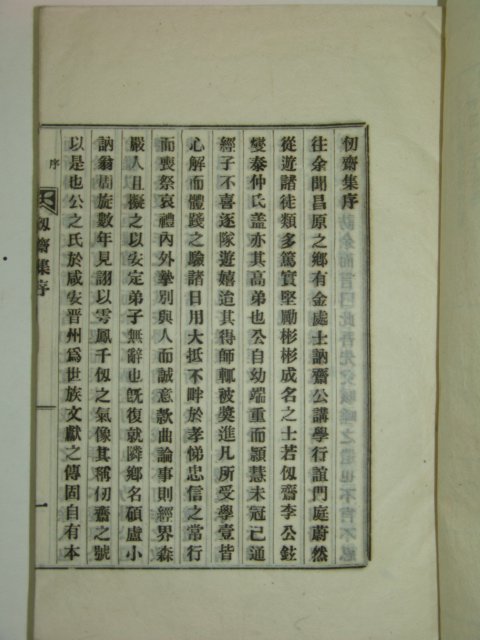 仞齋集序
往余聞昌原之鄉有金處士訥齋公講學行誼門庭蔚然
從遊諸徒類多篤實堅勵彬彬成名之士若仞齋李公鉉
燮泰仲氏蓋亦其高弟也公自幼端重而穎慧未冠已通
經子不喜逐隊遊嬉迨其得師輒被奬進凡所受學壹皆
心解而體踐之驗諸日用大抵不畔於孝悌忠信之常行
而喪祭哀禮內外摯別與人而誠意款曲論事則經界森
嚴人且擬之以安定弟子無辭也旣復就隣鄉名碩盧小
訥翁周旋數年見詡以雩鳳千仞之氣像其稱仞齋之號
以是也公之氏於咸安晋州爲世族文獻之傳固自有本
仞齋集序
序
一